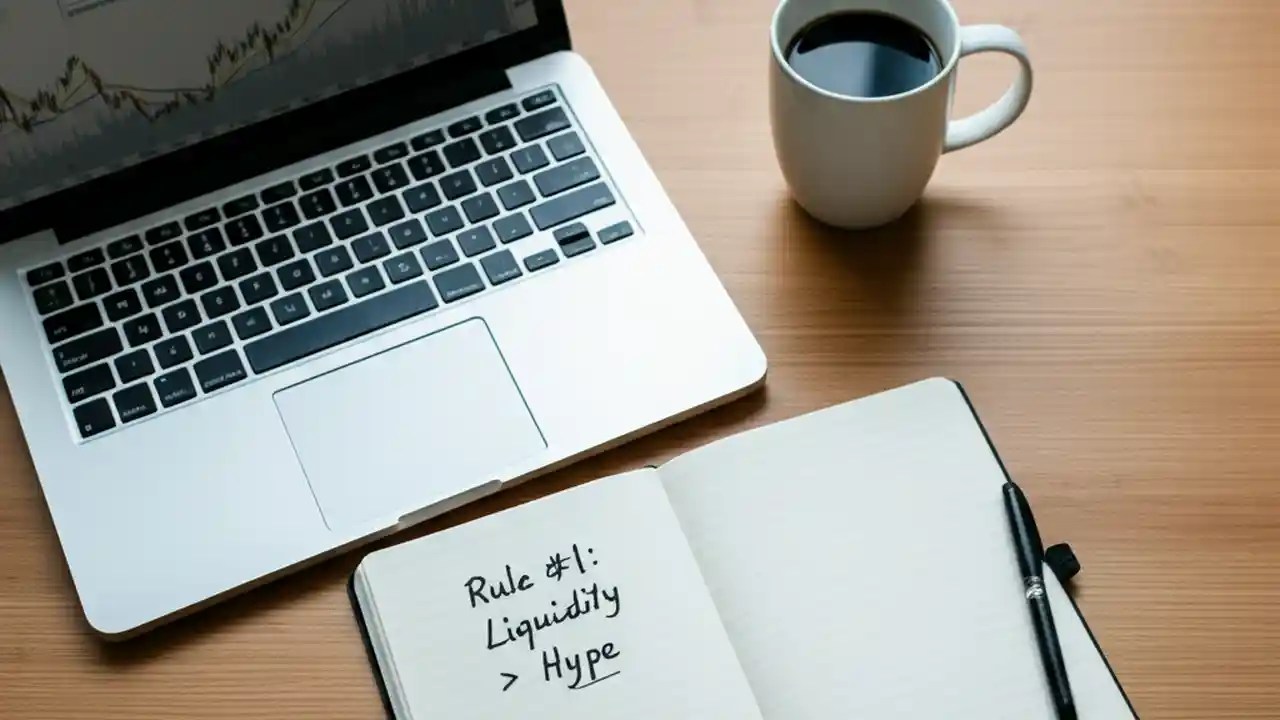 Rule #1:
Liquidity
> Hype